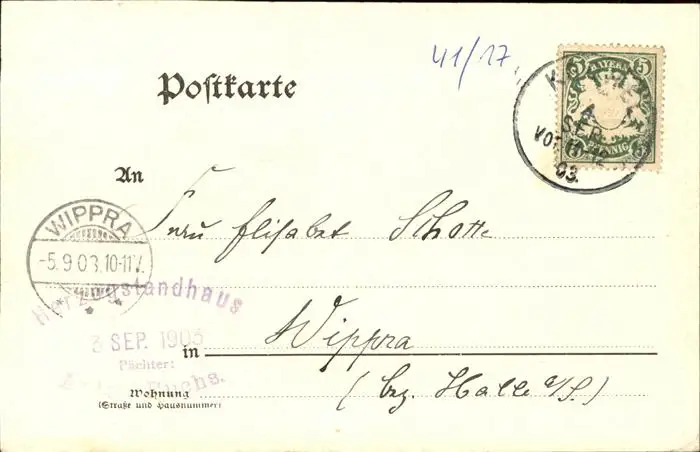 41/17
Postkarte
5 BAYERN 5
PFENNIG
SEP.
VOR
03.
An
Frau Elisabet Schotte
WIPPRA
-5.9.03.10-11V.
3 SEP. 1903
Pächter:
in Wippra
(bzg. Halle a/S.)
Wohnung
(Straße und Hausnummer)